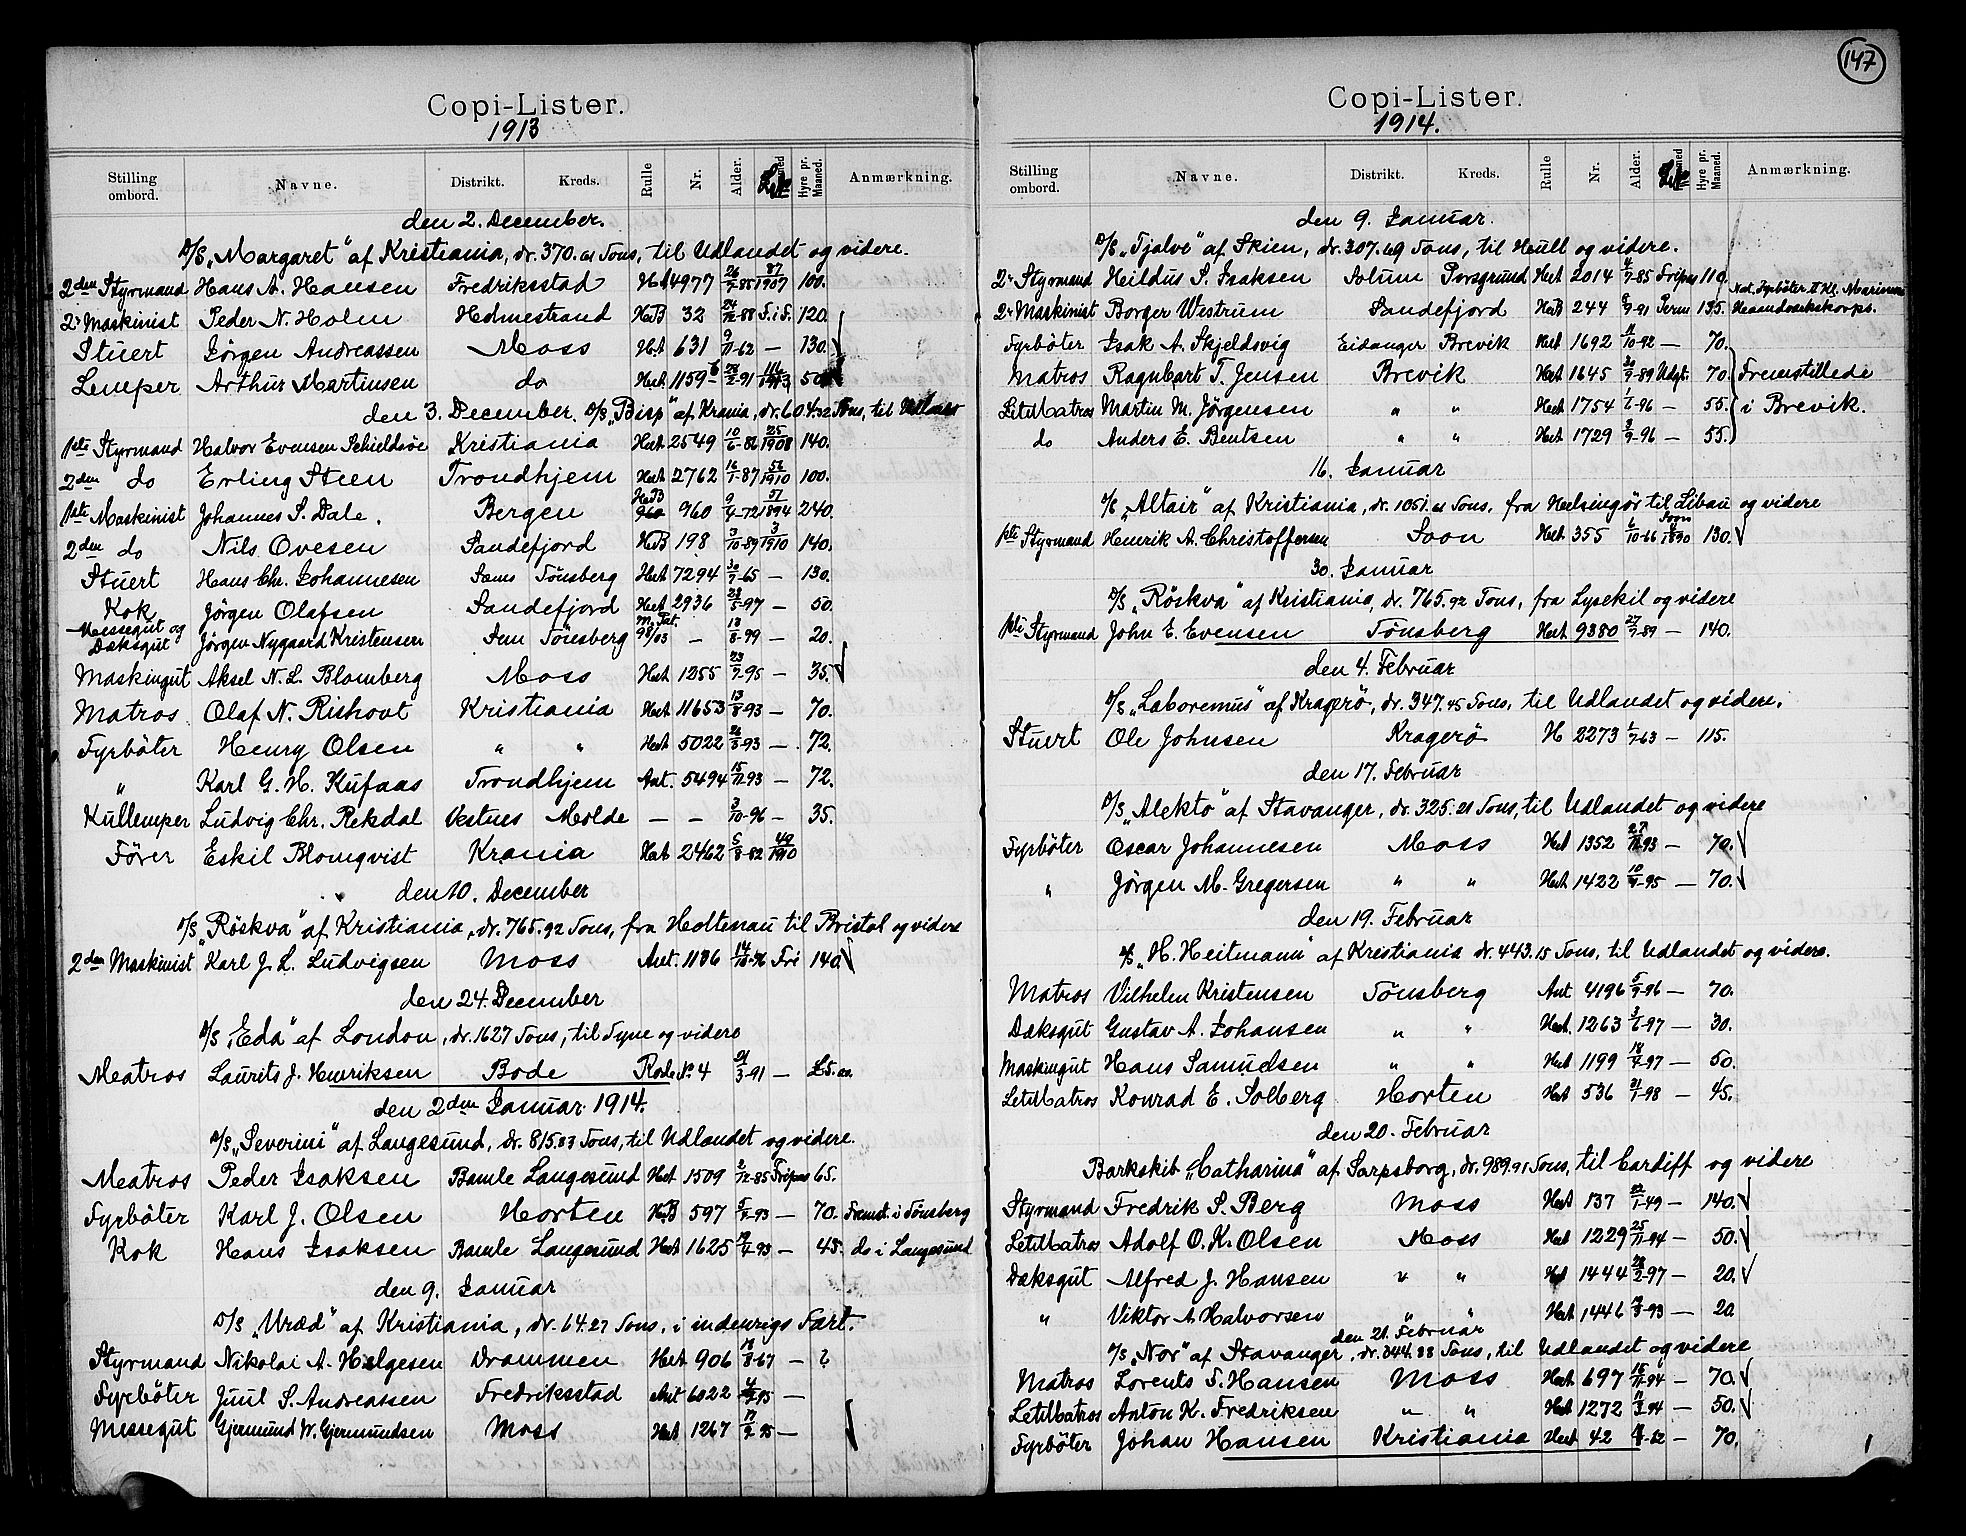 Copi-Lister.
1913
Stilling ombord. Navne. Distrikt. Kreds. Rulle Nr. Alder. Hyre pr. Maaned. Anmærkning.
den 2. December.
D/S „Margaret" af Kristiania, dr. 370.61 Tons, til Udlandet og videre.
2den Styrmand Hans A. Hansen Fredriksstad Hvt 4977 26/7-85 87/1907 100.
2. Maskinist Peder N. Holm Holmestrand HvB 32 24/12-88 F.i.S. 120.
Stuert Jörgen Andreassen Moss Hvt 631 9/11-62 — 130.
Lemper Arthur Martinsen do Hvt. 1159 28/2-91 50
den 3. December. D/S „Bisp" af Krania, dr. 604.32 Tons, til Udlandet
1ste Styrmand Halvor Evensen Kristiania Hvt 2549 10/6-82 25/1908 140.
2den do Erling Steen Trondhjem Hvt 2762 16/7-87 56/1910 100.
1ste Maskinist Johannes S. Dale. Bergen HvB 960 9/4-72 57/1894 240.
2den do Nils Ovesen Sandefjord HvB 198 3/10-89 3/1910 140.
Stuert Hans Chr. Johannesen Sems Tönsberg Hvt 7294 30/7-65 — 130.
Kok Jörgen Olafsen Sandefjord Hvt 2936 28/5-97 — 50.
Messegut og Dæksgut Jörgen Nygaard Kristensen Sem Tönsberg 98/03 — 13/8-99 — 20.
Maskingut Aksel N. L. Blomberg Moss Hvt 1255 23/7-95 — 35.
Matros Olaf N. Rishovt Kristiania Hvt 11653 13/8-93 — 70.
Fyrböter Henry Olsen " " Hvt 5022 26/3-93 — 72.
" Karl G. H. Kufaas Trondhjem Ant. 5494 15/12-93 — 72.
Kullemper Ludvig Chr. Rekdal Vestnes Molde — — 3/10-96 — 35.
Förer Eskil Blomqvist Krania Hvt 2462 5/8-82 49/1910
den 10. December
D/S „Röskva" af Kristiania, dr. 765.92 Tons, fra Holtenau til Bristol og videre
2den Maskinist Karl J. L. Ludvigsen Moss Ant. 1186 14/10-86 Fri 140.
den 24. December
D/S „Eda" af London, dr. 1627 Tons, til Tyne og videre
Matros Laurits J. Henriksen Bodö Bodö No 4 21/3-91 — £5.
den 2den Januar 1914.
D/S „Severini" af Langesund, dr. 815.83 Tons, til Udlandet og videre.
Matros Peder Isaksen Bamle Langesund Hvt 1509 2/12-85 Fripas 65.
Fyrböter Karl J. Olsen Horten HvB 597 5/9-93 — 70. Fremst. i Tönsberg
Kok Hans Isaksen Bamle Langesund Hvt 1625 -93 — 45. do i Langesund
den 9. Januar
D/S „Uræd" af Kristiania, dr. 64.27 Tons, i indenrigs Fart.
Styrmand Nikolai A. Helgesen Drammen Hvt 906 18/8-67 — ?
Fyrböter Juul S. Andreassen Fredriksstad Ant 6022 -95 —
Messegut Gjermund W. Gjermundsen Moss Hvt 1267 -95 —
147
Copi-Lister.
1914.
Stilling ombord. Navne. Distrikt. Kreds. Rulle Nr. Alder. Hyre pr. Maaned. Anmærkning.
den 9. Januar.
D/S „Tjalve" af Skien, dr. 307.69 Tons, til Hull og videre.
2. Styrmand Heildus S. Isaksen Solum Porsgrund Hvt 2014 4/9-85 Fripas 110.
2. Maskinist Borger Westrum Sandefjord HvB 244 9/9-91 Perm 135. Nod. Fyrböter II Kl. Marinens Haandværkskorps.
Fyrböter Isak A. Skjeldsvig Eidanger Brevik Hvt 1692 11/10-92 — 70.
Matros Ragnbart T. Jensen Brevik Hvt 1645 30/9-89 Udgt. 70. Fremstillede
LetMatros Martin M. Jörgensen " " Hvt 1754 1/6-96 — 55. i Brevik.
do Anders E. Bentsen " " Hvt 1729 3/9-96 — 55.
16. Januar
D/S „Altair" af Kristiania, dr. 1051.61 Tons, fra Helsingör til Libau og videre
1ste Styrmand Henrik A. Christoffersen Soon Hvt. 355 6/10-66 130.
30. Januar
D/S „Röskva" af Kristiania, dr. 765.92 Tons, fra Lysekil og videre
1ste Styrmand John E. Evensen Tönsberg Hvt 9380 27/7-89 — 140.
den 4. Februar
D/S „Laboremus" af Kragerö, dr. 347.45 Tons, til Udlandet og videre.
Stuert Ole Johnsen Kragerö H 2273 1/7-63 — 115.
den 17. Februar
D/S „Alekto" af Stavanger, dr. 325.21 Tons, til Udlandet og videre
Fyrböter Oscar Johannesen Moss Hvt 1352 27/12-93 — 70.
" Jörgen M. Gregersen " " Hvt 1422 10/9-95 — 70.
den 19. Februar
D/S „H. Heitmann" af Kristiania dr. 443.15 Tons, til Udlandet og videre.
Matros Vilhelm Kristensen Tönsberg Ant 4196 5/9-96 — 70.
Dæksgut Gustav A. Johansen " " Hvt. 1263 3/6-97 — 30.
Maskingut Hans Samudsen " " Hvt 1199 18/9-97 — 50.
LetMatros Konrad E. Solberg Horten Hvt 536 21/1-98 — 45.
den 20. Februar
Barkskib „Catharina" af Sarpsborg, dr. 989.91 Tons, til Cardiff og videre
Styrmand Fredrik S. Berg Moss Hvt 137 22/1-49 — 140.
LetMatros Adolf O. K. Olsen Moss Hvt 1229 25/11-94 — 50.
Dæksgut Alfred J. Hansen " " Hvt 1444 28/2-97 — 20.
" Viktor A Halvorsen " " Hvt 1446 -93 — 20
den 21. Februar
D/S „Nor" af Stavanger, dr. 344.88 Tons, til Udlandet og videre
Matros Lorents F. Hansen Moss Hvt 697 15/11-94 — 70.
LetMatros Anton K. Fredriksen " " Hvt 1272 -94 — 50.
Fyrböter Johan Hansen Kristiania Hvt 42 -82 — 70.